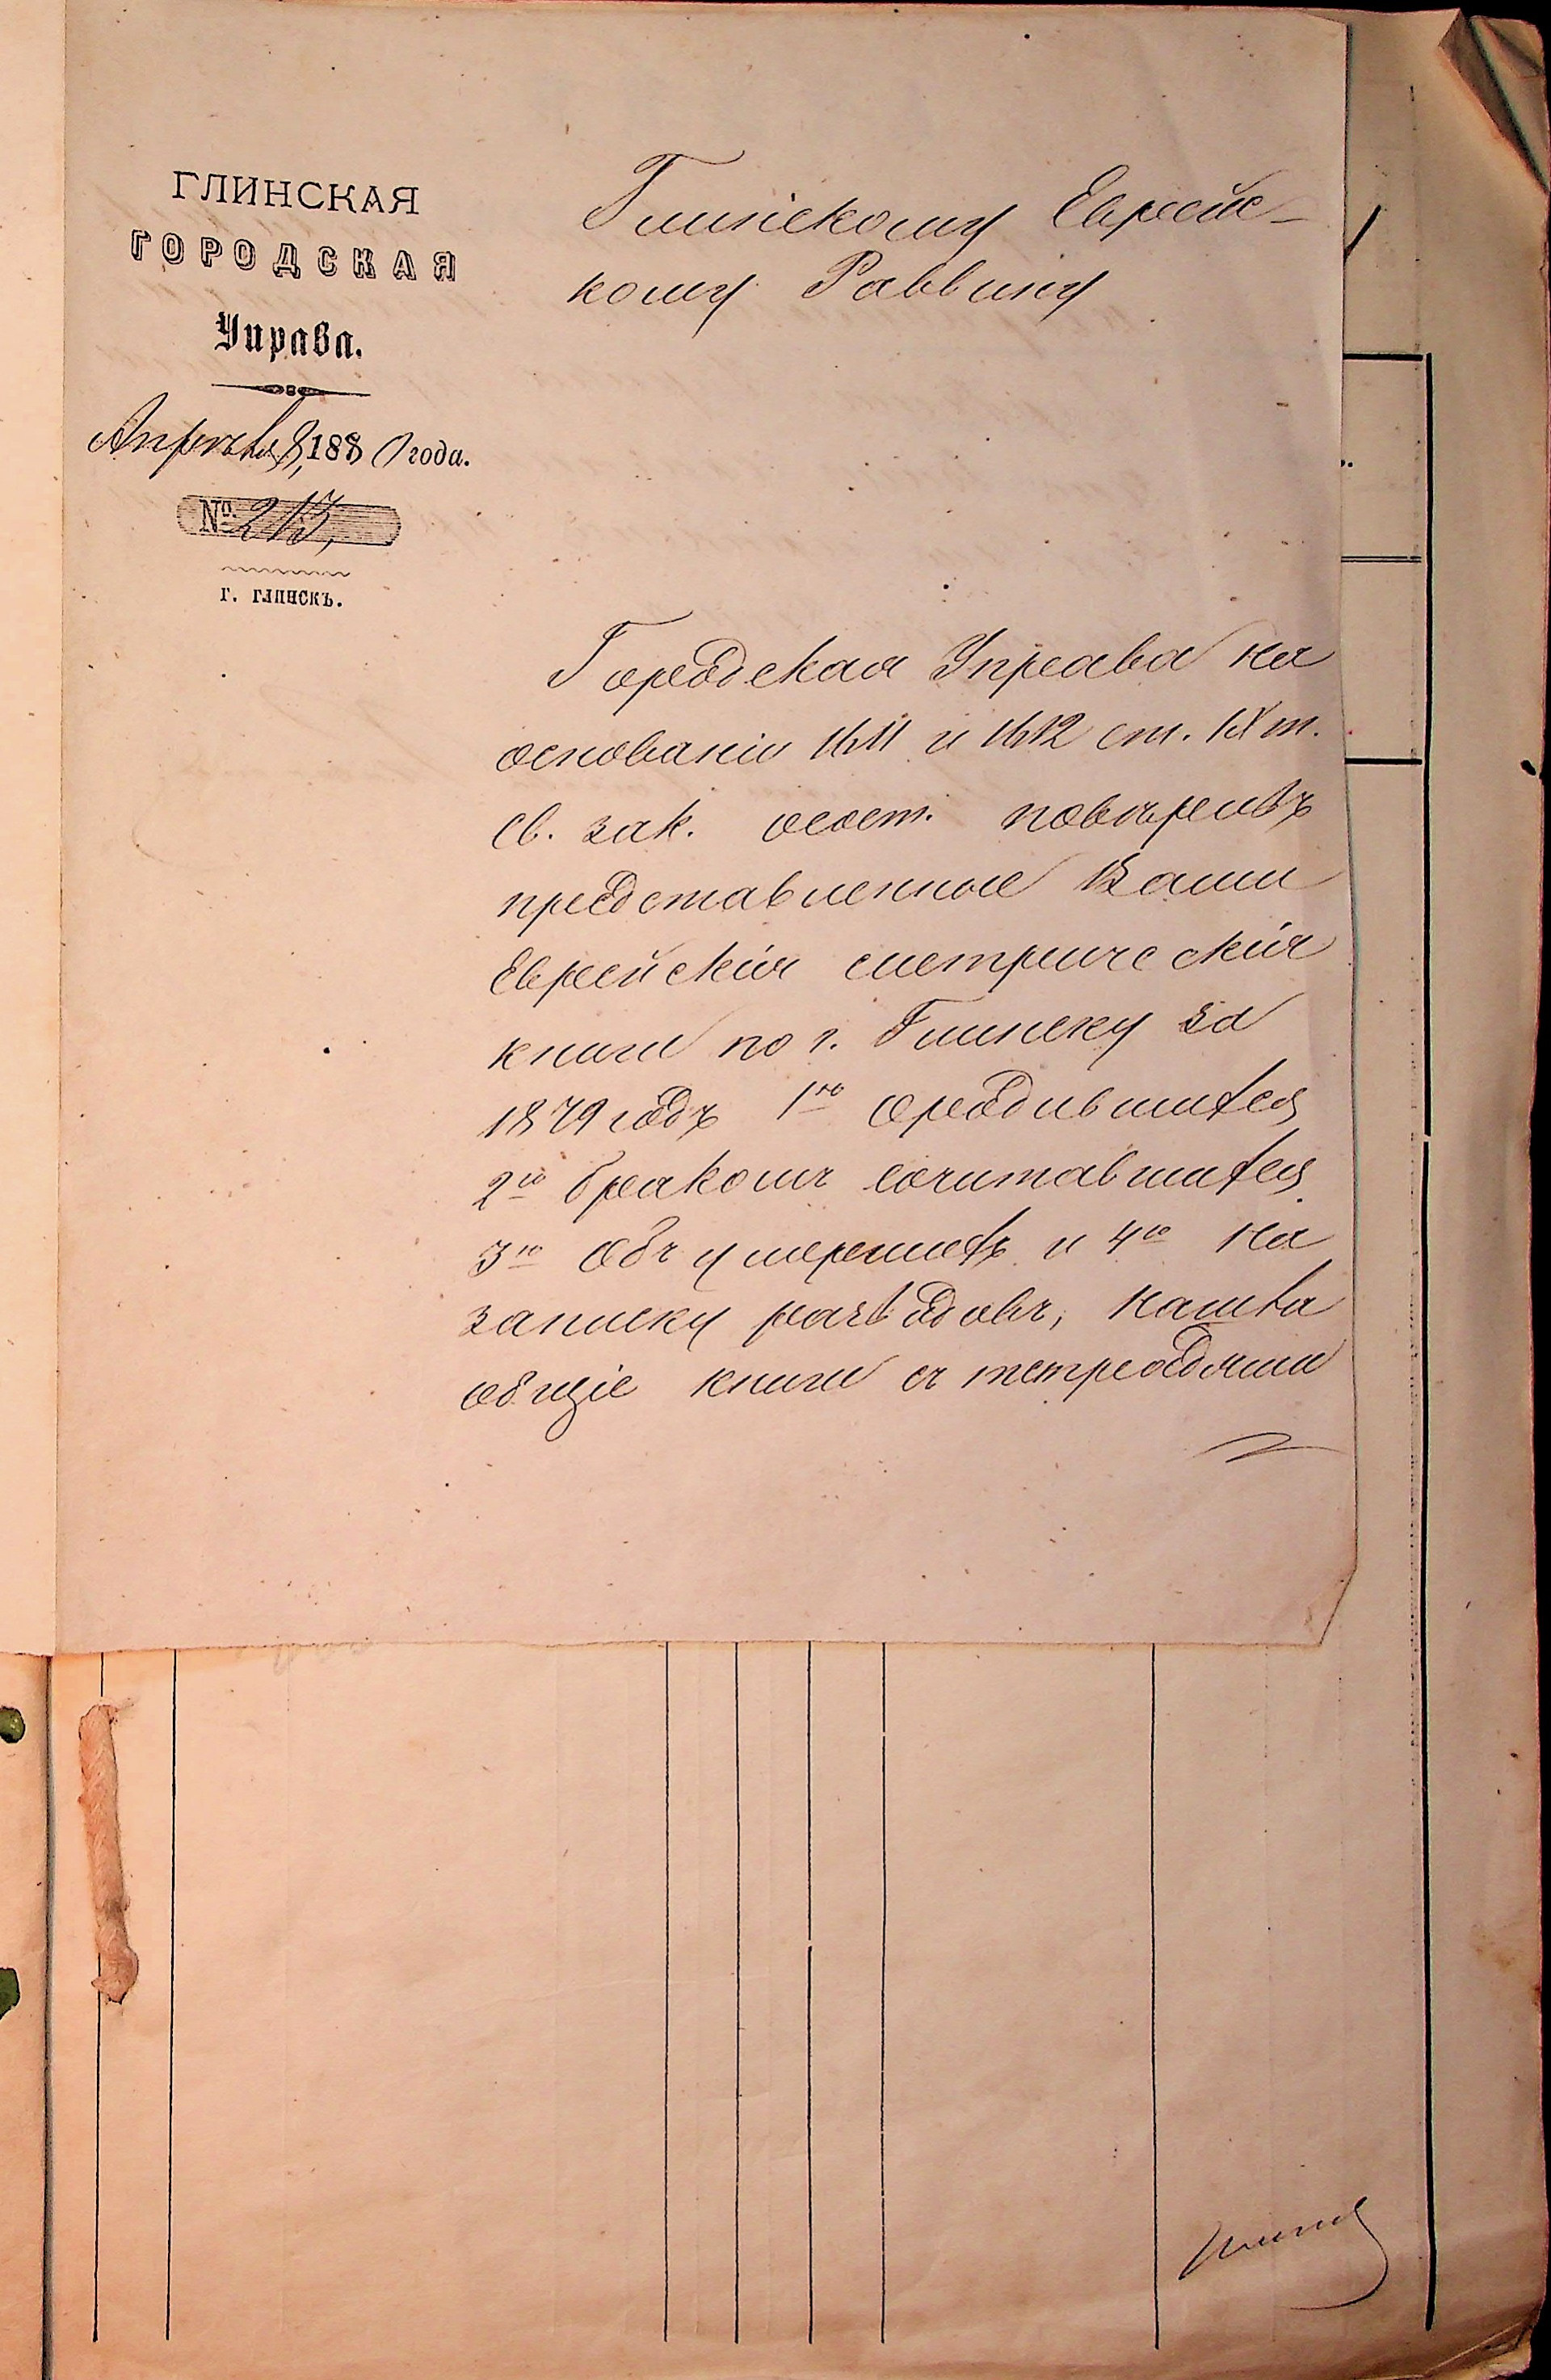 ГЛИНСКАЯ
ГОРОДСКАЯ
Управа.
Апрѣля 8, 1880 года.
№ 213,
г. Глинскъ.
Глинскому Еврейс-
кому Раввину
Городская Управа на
основаніи 1611 и 1612 ст. IX т.
св. зак. о сост. повѣривъ
представленные Вами
Еврейскія метрическія
книги по г. Глинску за
1879 годъ 1го о родившихся,
2го бракомъ сочитавшихся,
3го объ умершихъ и 4го на
записку разводовъ, нашла
общіе книги съ тетрадями